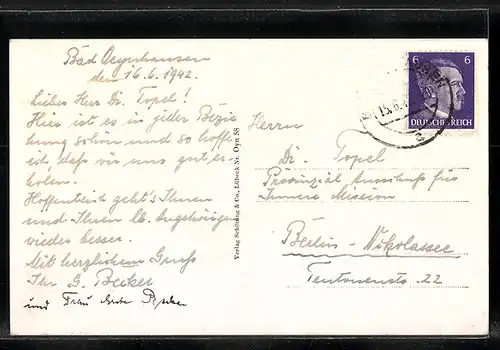 Bad Oeynhausen
den 16.6.1942.
Lieber Herr Dr. Topel!
Hier ist es in jeder Bezie
hung schön und so hoffe
ich, daß wir uns gut er-
holen.
Hoffentlich geht's Ihnen
und Ihren lb. Angehörigen
wieder besser.
Mit herzlichem Gruß
Ihr G. Becker
und Frau
Verlag Schöning & Co., Lübeck Nr. Oyn 55
6 6
DEUTSCHES REICH
15.6.
Herrn
Dr. Topel
Provinzial Ausschuß für
Innere Mission
Berlin-Nikolassee
Teutonenstr. 22